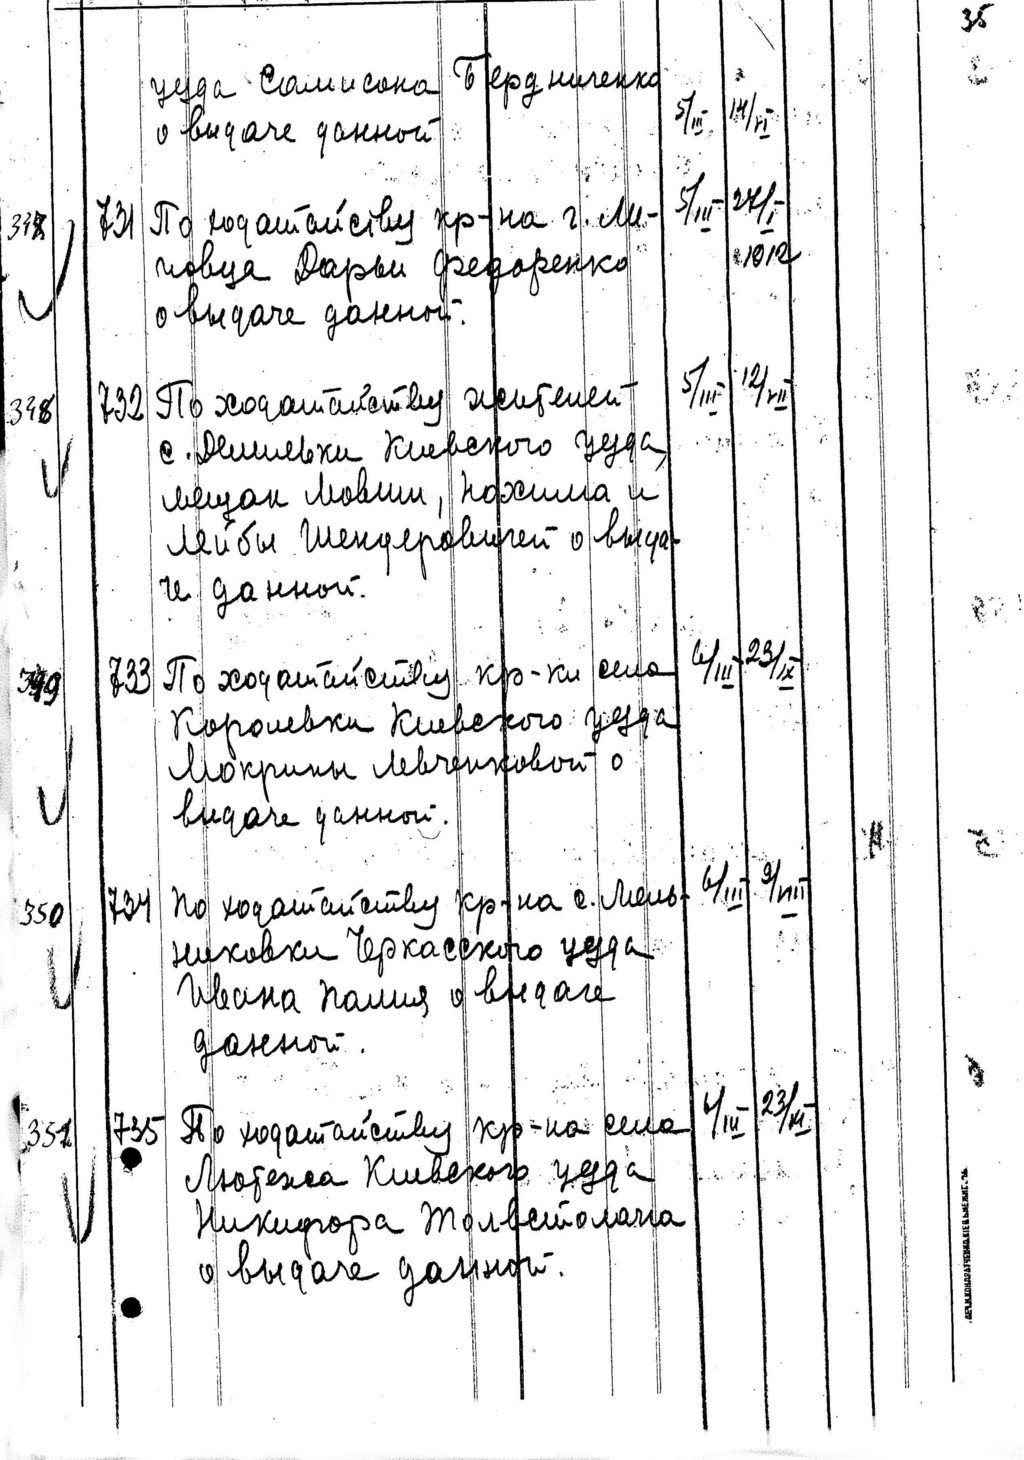 35
уезда Самисона Бердниченко
о выдаче данной 5/III 14/VI
348 731 По ходатайству кр-на г. Ли- 5/III 27/I
повца Дарьи Федоренко 1912
о выдаче данной.
348 732 По ходатайству жителей 5/III 12/VII
с. Демильки Киевского уезда,
мещан Мовши, Нохима и
Лейбы Шендеровичей о выда-
че данной.
349 733 По ходатайству кр-ки села 6/III 23/IX
Королевки Киевского уезда
Мокрины Левченковой о
выдаче данной.
350 734 По ходатайству кр-на с. Мель- 6/III 9/VIII
никовки Черкасского уезда
Ивана Палия о выдаче
данной.
351 735 По ходатайству кр-на села 4/III 23/XI
Лютежа Киевского уезда
Никифора Толвстолача
о выдаче данной.